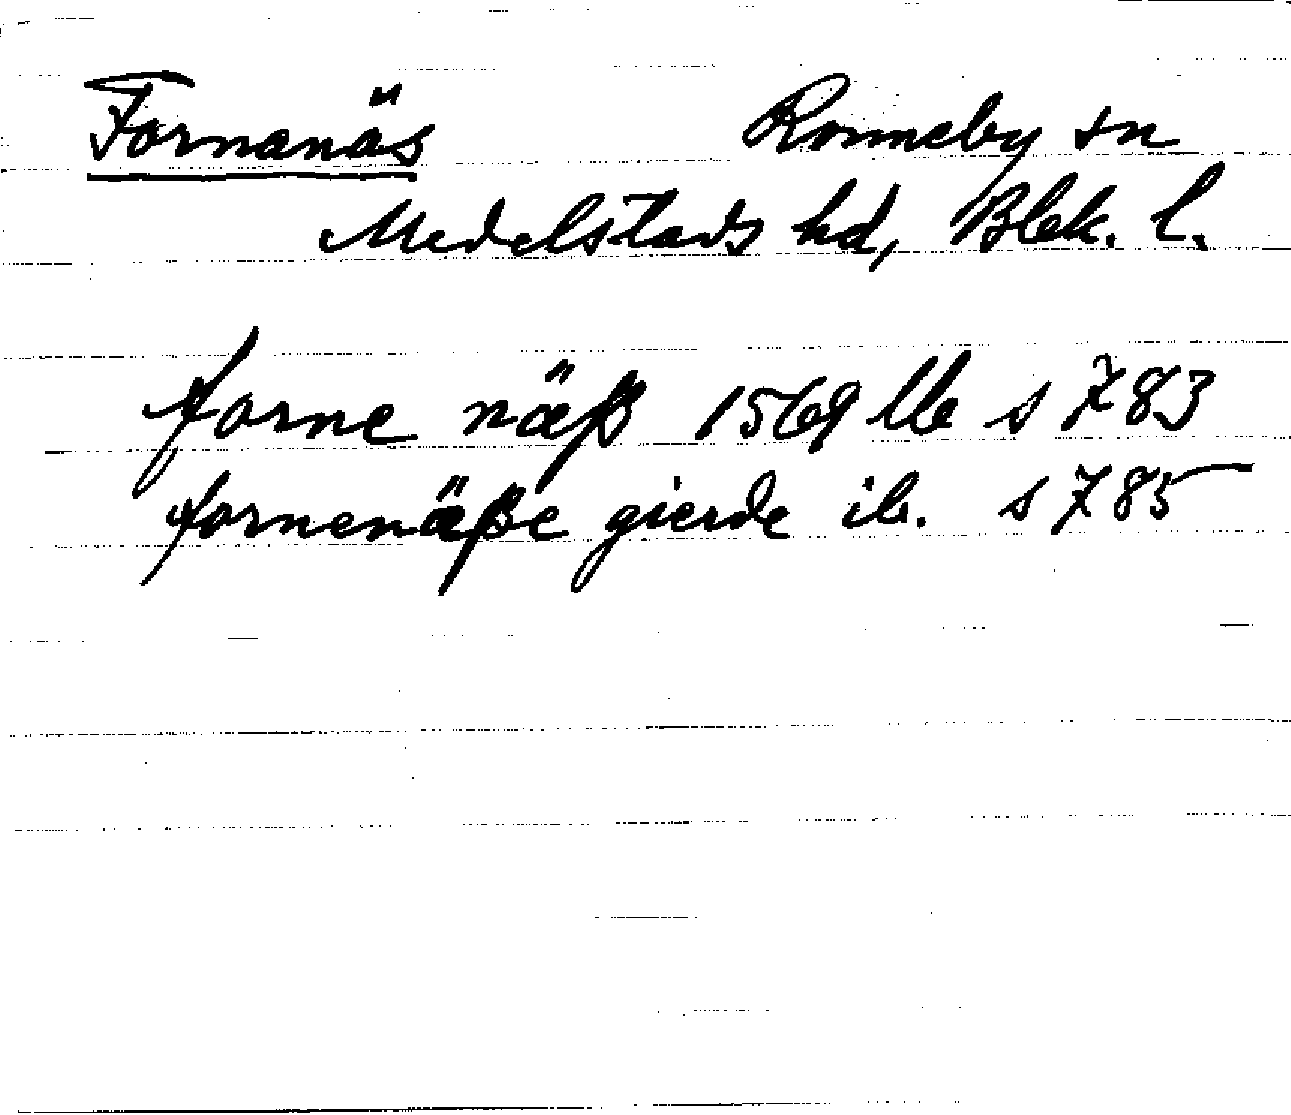 Fornanäs Ronneby sn
Medelstads hd, Blek. l.
forne näß 1569 lb s 783
fornenäße gierde ib. s 785